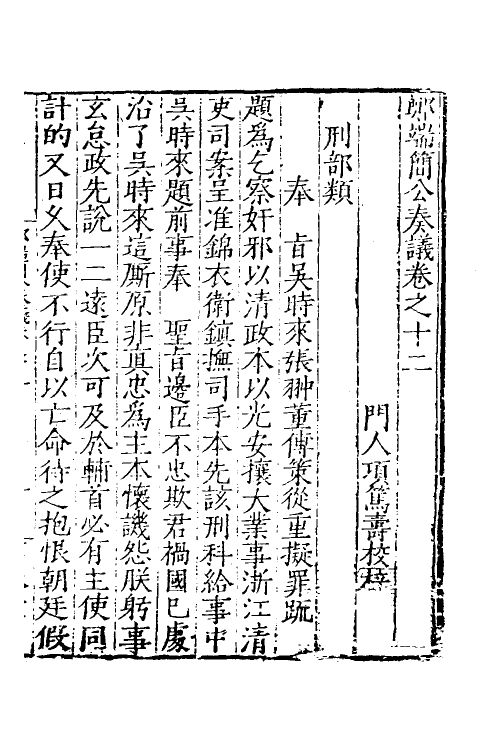 鄭端簡公奏議卷之十二
門人項篤壽校梓
刑部類
奉　旨吳時來張翀董傳策從重擬罪疏
題為乞察奸邪以清政本以光安攘大業事浙江清
吏司案呈准錦衣衛鎮撫司手本先該刑科給事中
吳時來題前事奉　聖旨邊臣不忠欺君禍國已處
治了吳時來這厮原非真忠為主本懷譏怨朕躬事
玄怠政先說一二遠臣次可及於輔首必有主使同
計的又日久奉使不行自以亡命待之抱恨朝廷假